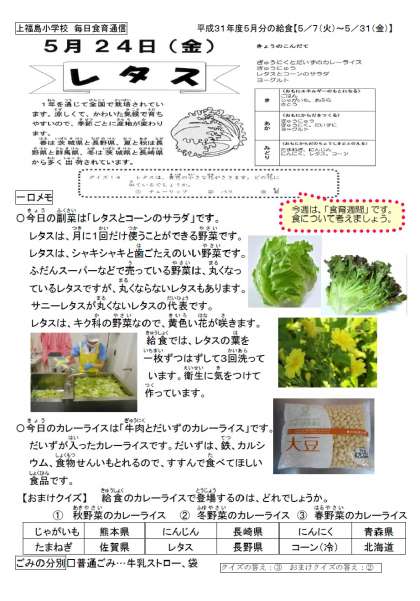 上福島小学校 毎日食育通信
平成31年度5月分の給食【5/7(火)~5/31(金)】
5月24日(金)
レタス
1年を通じて全国で栽培されてい
ます。涼しくて、かわいた気候で育ち
やすいので、季節ごとに産地が変わり
ます。
春は茨城県と長野県、夏と秋は長
野県と群馬県、冬は茨城県と長崎県
から多く出荷されています。
きょうのこんだて
ぎゅうにくとだいずのカレーライス
ぎゅうにゅう
レタスとコーンのサラダ
ヨーグルト
き
(おもにエネルギーのもとになる)
ごはん
じゃがいも、あぶら
さとう
あか
(おもにからだをつくる)
ぎゅうにく、だいず
ぎゅうにゅう
ヨーグルト
みどり
(おもにからだのちょうしをととのえる)
たまねぎ、にんじん
にんにく、レタス、コーン
一口メモ
今週は、「食育週間」です。
食について考えましょう。
○今日の副菜は「レタスとコーンのサラダ」です。
レタスは、月に1回だけ使うことができる野菜です。
レタスは、シャキシャキと歯ごたえのいい野菜です。
ふだんスーパーなどで売っている野菜は、丸くなっ
ているレタスですが、丸くならないレタスもあります。
サニーレタスが丸くないレタスの代表です。
レタスは、キク科の野菜なので、黄色い花が咲きます。
給食では、レタスの葉を
一枚ずつはずして3回洗って
います。衛生に気をつけて
作っています。
○今日のカレーライスは「牛肉とだいずのカレーライス」です。
だいずが入ったカレーライスです。だいずは、鉄、カルシ
ウム、食物せんいもとれるので、すすんで食べてほしい
食品です。
大豆
【おまけクイズ】 給食のカレーライスで登場するのは、どれでしょうか。
① 秋野菜のカレーライス ② 冬野菜のカレーライス ③ 春野菜のカレーライス
じゃがいも 熊本県 にんじん 長崎県 にんにく 青森県
たまねぎ 佐賀県 レタス 長野県 コーン(冷) 北海道
ごみの分別 □普通ごみ…牛乳ストロー、袋
クイズの答え:③ おまけクイズの答え:②